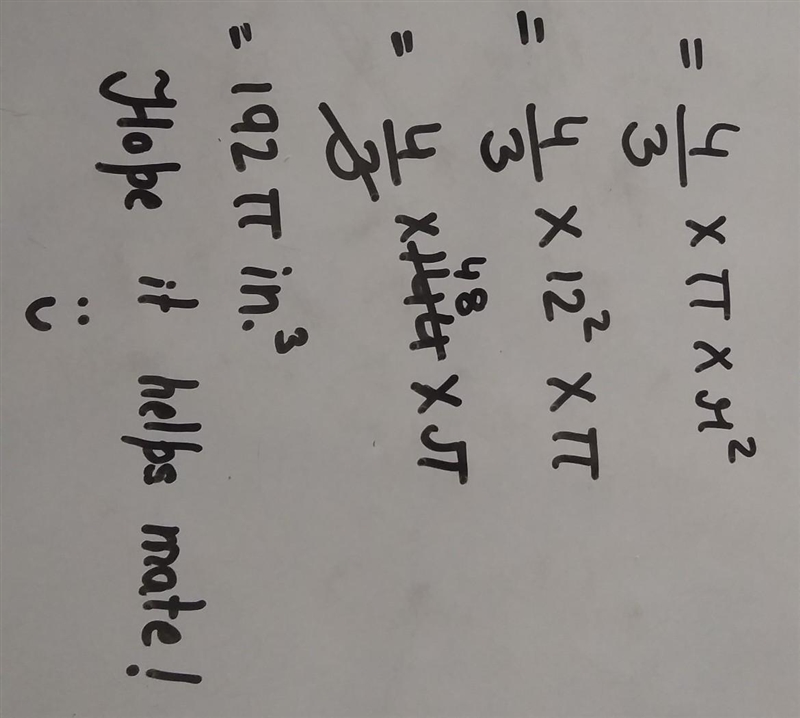 = 4/3 × π × r²
= 4/3 × 12² × π
= 4/3 × 144 48 × π
= 192 π in.³
Hope it helps mate!
:)